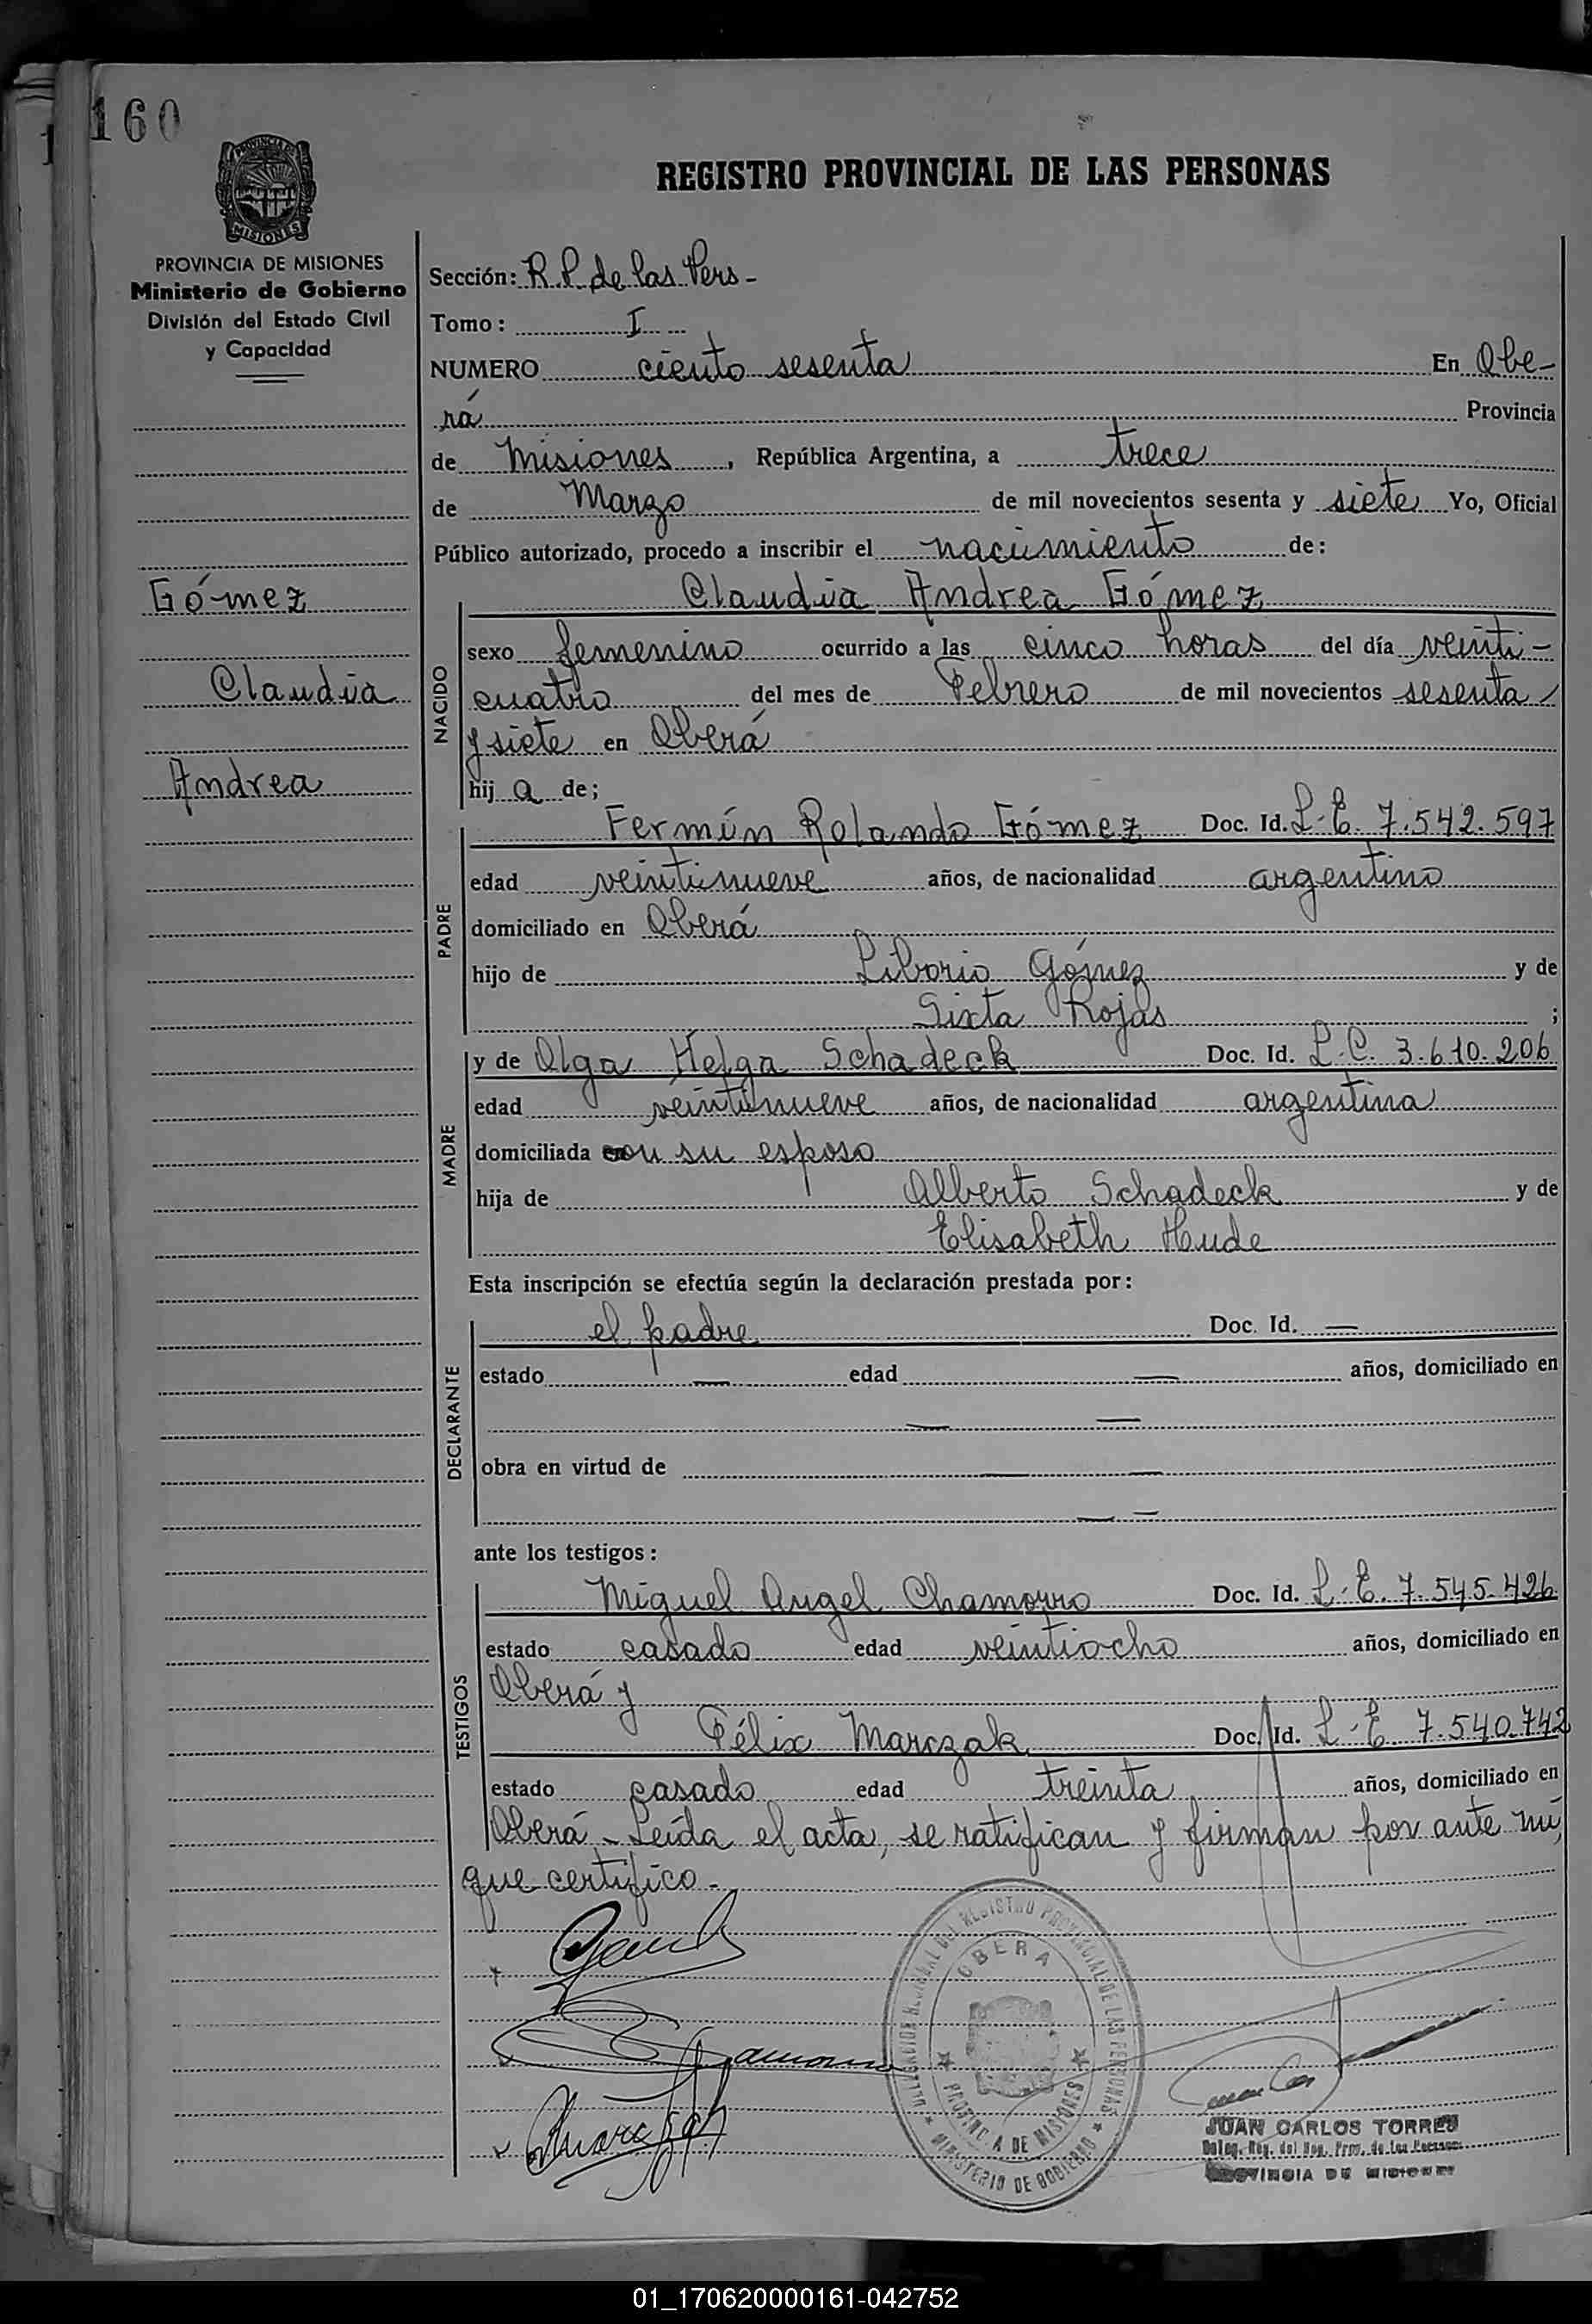 160
PROVINCIA DE
MISIONES
REGISTRO PROVINCIAL DE LAS PERSONAS
PROVINCIA DE MISIONES
Ministerio de Gobierno
División del Estado Civil
y Capacidad
Gómez
Claudia
Andrea
Sección: R.P. de las Pers-
Tomo: I
NUMERO ciento sesenta En Obe-
rá Provincia
de Misiones, República Argentina, a trece
de Marzo de mil novecientos sesenta y siete Yo, Oficial
Público autorizado, procedo a inscribir el nacimiento de:
NACIDO
Claudia Andrea Gómez
sexo femenino ocurrido a las cinco horas del día veinti-
cuatro del mes de Febrero de mil novecientos sesenta
y siete en Oberá
hija de;
PADRE
Fermín Rolando Gómez Doc. Id. L.E. 7.542.597
edad veintinueve años, de nacionalidad argentino
domiciliado en Oberá
hijo de Liborio Gómez y de
Sixta Rojas ;
MADRE
y de Olga Helga Schadeck Doc. Id. L.C. 3.610.206
edad veintinueve años, de nacionalidad argentina
domiciliada con su esposo
hija de Alberto Schadeck y de
Elisabeth Hude
Esta inscripción se efectúa según la declaración prestada por:
DECLARANTE
el padre Doc. Id. —
estado — edad — años, domiciliado en
— —
obra en virtud de — —
— —
ante los testigos:
TESTIGOS
Miguel Angel Chamorro Doc. Id. L.E. 7.545.426
estado casado edad veintiocho años, domiciliado en
Oberá y
Félix Marczak Doc. Id. L.E. 7.540.742
estado casado edad treinta años, domiciliado en
Oberá - Leída el acta, se ratifican y firman por ante mí,
que certifico.-
DELEGACION REGIONAL DEL REGISTRO PROVINCIAL DE LAS PERSONAS
OBERA
PROVINCIA DE MISIONES
MINISTERIO DE GOBIERNO
JUAN CARLOS TORRES
Deleg. Reg. del Reg. Prov. de las Personas
PROVINCIA DE MISIONES
01_170620000161-042752